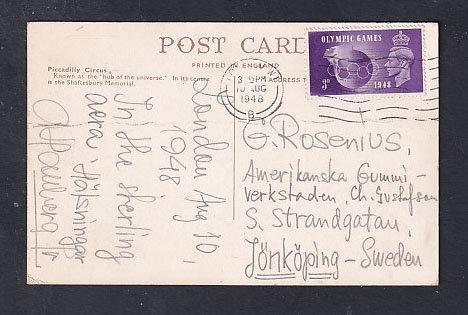 POST CARD
PRINTED IN ENGLAND
Piccadilly Circus,
Known as the "hub of the universe." In its centre
is the Shaftesbury Memorial.
ADDRESS
OLYMPIC GAMES
3D
1948
3 PM
10 AUG
1948
London Aug 10,
1948
In the sterling
aera. Hälsningar
G. Rosenius,
Amerikanska Gummi-
verkstaden, Ch. Gustafson
S. Strandgatan,
Jönköping - Sweden